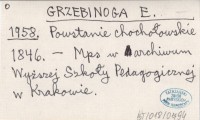 GRZEBINOGA E.
1958. Powstanie chochołowskie
1846. – Mps w archiwum
Wyższej Szkoły Pedagogicznej
w Krakowie.